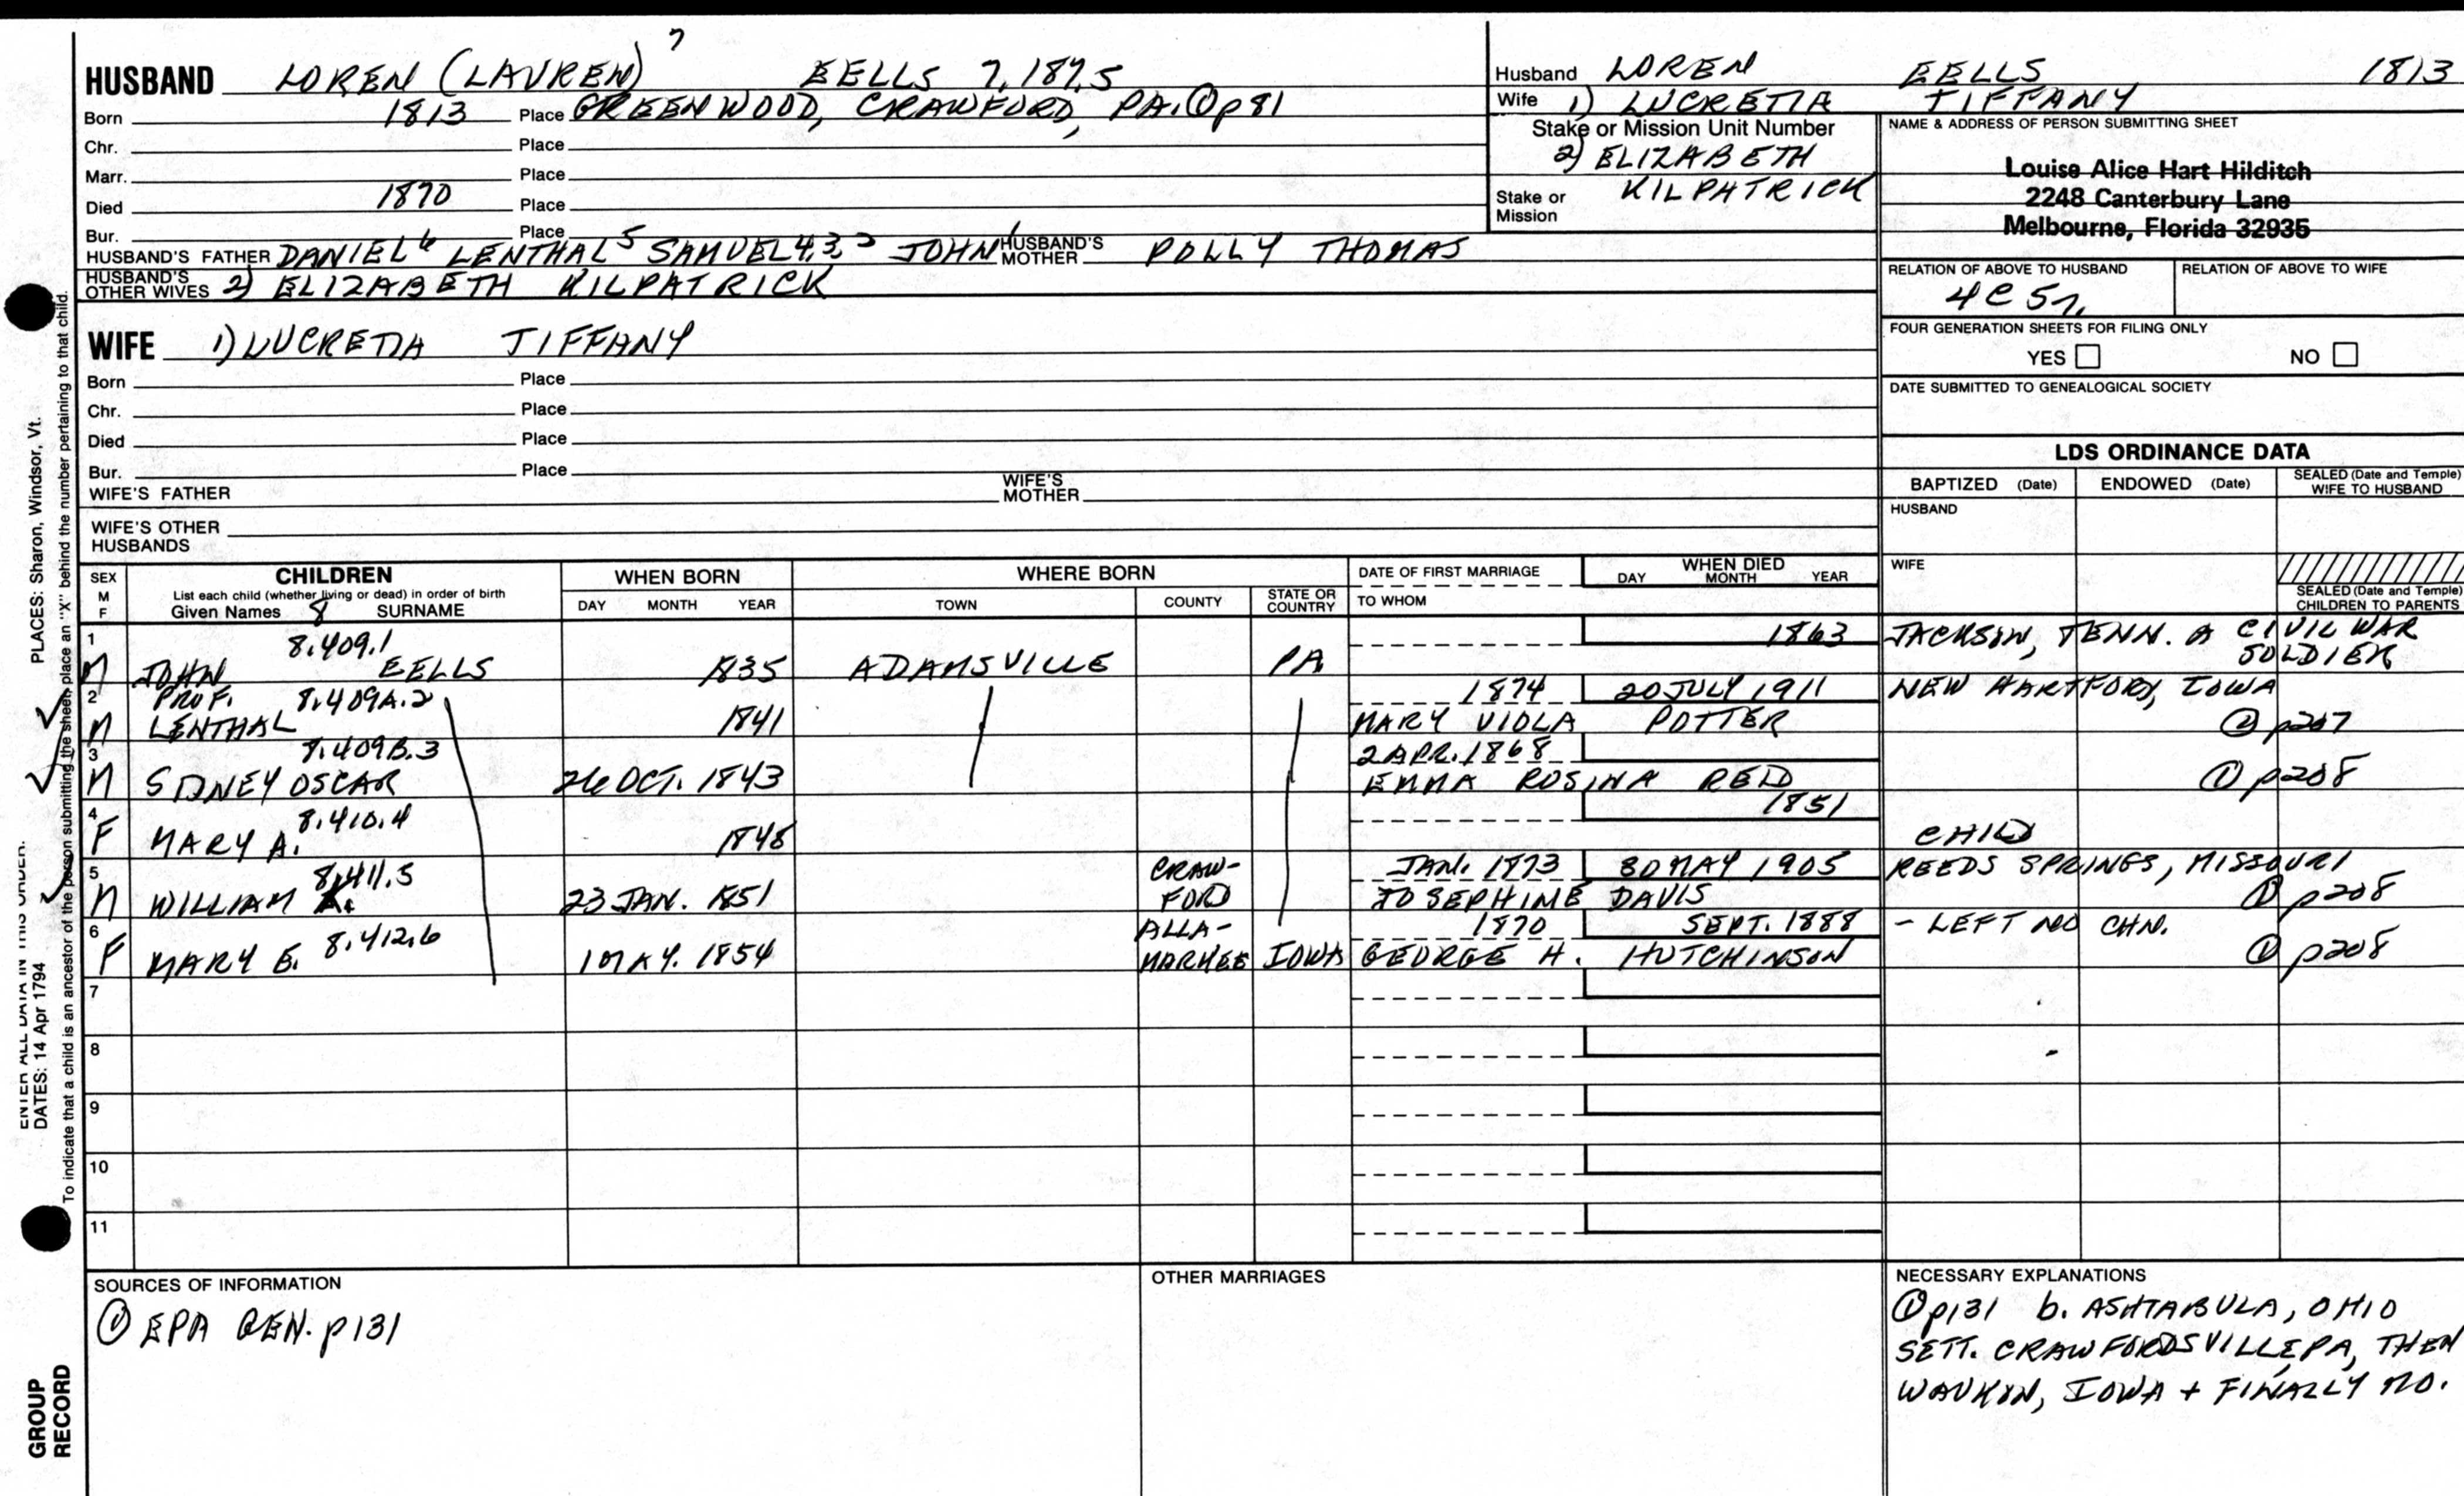 HUSBAND LOREN (LAUREN) 7 EELLS 7,187,5
Born 1813 Place GREENWOOD, CRAWFORD, PA. ① p81
Chr. Place
Marr. Place
Died 1870 Place
Bur. Place
HUSBAND'S FATHER DANIEL 6 LENTHAL 5 SAMUEL 4,3,2 JOHN 1 HUSBAND'S MOTHER POLLY THOMAS
HUSBAND'S OTHER WIVES 2) ELIZABETH KILPATRICK
WIFE 1) LUCRETIA TIFFANY
Born Place
Chr. Place
Died Place
Bur. Place
WIFE'S FATHER WIFE'S MOTHER
WIFE'S OTHER HUSBANDS
Husband LOREN EELLS 1813
Wife 1) LUCRETIA TIFFANY
Stake or Mission Unit Number
2) ELIZABETH
Stake or Mission KILPATRICK
NAME & ADDRESS OF PERSON SUBMITTING SHEET
Louise Alice Hart Hilditch
2248 Canterbury Lane
Melbourne, Florida 32935
RELATION OF ABOVE TO HUSBAND RELATION OF ABOVE TO WIFE
4C 5r.
FOUR GENERATION SHEETS FOR FILING ONLY
YES NO
DATE SUBMITTED TO GENEALOGICAL SOCIETY
LDS ORDINANCE DATA
BAPTIZED (Date) ENDOWED (Date) SEALED (Date and Temple) WIFE TO HUSBAND
HUSBAND
WIFE
SEALED (Date and Temple) CHILDREN TO PARENTS
SEX M F CHILDREN WHEN BORN WHERE BORN DATE OF FIRST MARRIAGE WHEN DIED
List each child (whether living or dead) in order of birth
Given Names 8 SURNAME DAY MONTH YEAR TOWN COUNTY STATE OR COUNTRY TO WHOM DAY MONTH YEAR
1 8.409.1 1863 JACKSON, TENN. A CIVIL WAR SOLDIER
M JOHN EELLS 1835 ADAMSVILLE PA
2 PROF. 8.409A.2 1874 20 JULY 1911 NEW HARTFORD, IOWA
M LENTHAL 1841 MARY VIOLA POTTER ② p207
3 8.409B.3 2 APR. 1868
M SIDNEY OSCAR 26 OCT. 1843 EMMA ROSINA REID ① p208
4 8.410.4 1851
F MARY A. 1848 CHILD
5 8.411.5 CRAW- JAN. 1873 30 MAY 1905 REEDS SPRINGS, MISSOURI
M WILLIAM A. 23 JAN. 1851 FORD JOSEPHINE DAVIS ① p208
6 8.412.6 ALLA- 1870 SEPT. 1888 - LEFT NO CHN.
F MARY E. 1 MAY. 1854 MAKHEE IOWA GEORGE H. HUTCHINSON ① p208
7
8
9
10
11
SOURCES OF INFORMATION
① EPA GEN. p131
OTHER MARRIAGES
NECESSARY EXPLANATIONS
① p131 b. ASHTABULA, OHIO
SETT. CRAWFORDSVILLE, PA, THEN
WAUKON, IOWA + FINALLY MO.
ENTER ALL DATA IN THIS ORDER:
DATES: 14 Apr 1794 PLACES: Sharon, Windsor, Vt.
To indicate that a child is an ancestor of the person submitting the sheet, place an "X" behind the number pertaining to that child.
GROUP RECORD